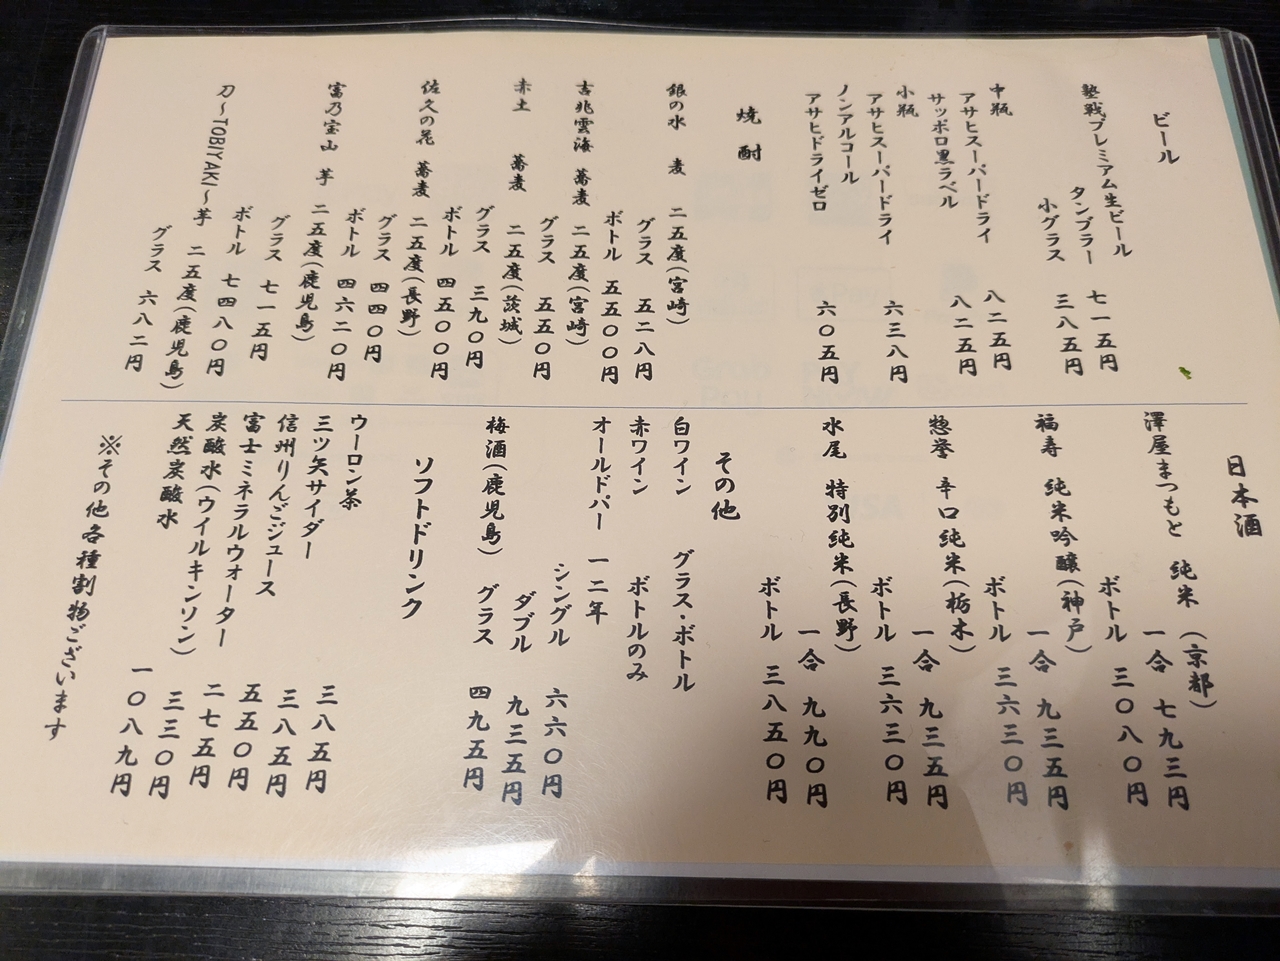 ビール
塾戦プレミアム生ビール
タンブラー 七一五円
小グラス 三八五円
中瓶
アサヒスーパードライ 八二五円
サッポロ黒ラベル 八二五円
小瓶
アサヒスーパードライ 六三八円
ノンアルコール
アサヒドライゼロ 六〇五円
焼酎
銀の水 麦 二五度(宮崎)
グラス 五二八円
ボトル 五五〇〇円
吉兆雲海 蕎麦 二五度(宮崎)
グラス 五五〇円
赤土 蕎麦 二五度(茨城)
グラス 三九〇円
ボトル 四五〇〇円
佐久の花 蕎麦 二五度(長野)
グラス 四四〇円
ボトル 四六二〇円
富乃宝山 芋 二五度(鹿児島)
グラス 七一五円
ボトル 七四八〇円
刀〜TOBIYAKI〜芋 二五度(鹿児島)
グラス 六八二円
日本酒
澤屋まつもと 純米 (京都)
一合 七九三円
ボトル 三〇八〇円
福寿 純米吟醸(神戸)
一合 九三五円
ボトル 三六三〇円
惣誉 辛口純米(栃木)
一合 九三五円
ボトル 三六三〇円
水尾 特別純米(長野)
一合 九九〇円
ボトル 三八五〇円
その他
白ワイン グラス・ボトル
赤ワイン ボトルのみ
オールドパー 一二年
シングル 六六〇円
ダブル 九三五円
梅酒(鹿児島) グラス 四九五円
ソフトドリンク
ウーロン茶 三八五円
三ツ矢サイダー 三八五円
信州りんごジュース 五五〇円
富士ミネラルウォーター 二七五円
炭酸水(ウイルキンソン) 三三〇円
天然炭酸水 一〇八九円
※その他各種割物ございます